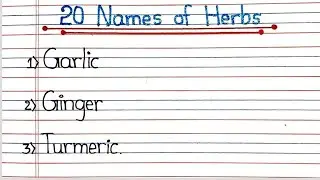 20 Names of Herbs
1) Garlic
2) Ginger
3) Turmeric.